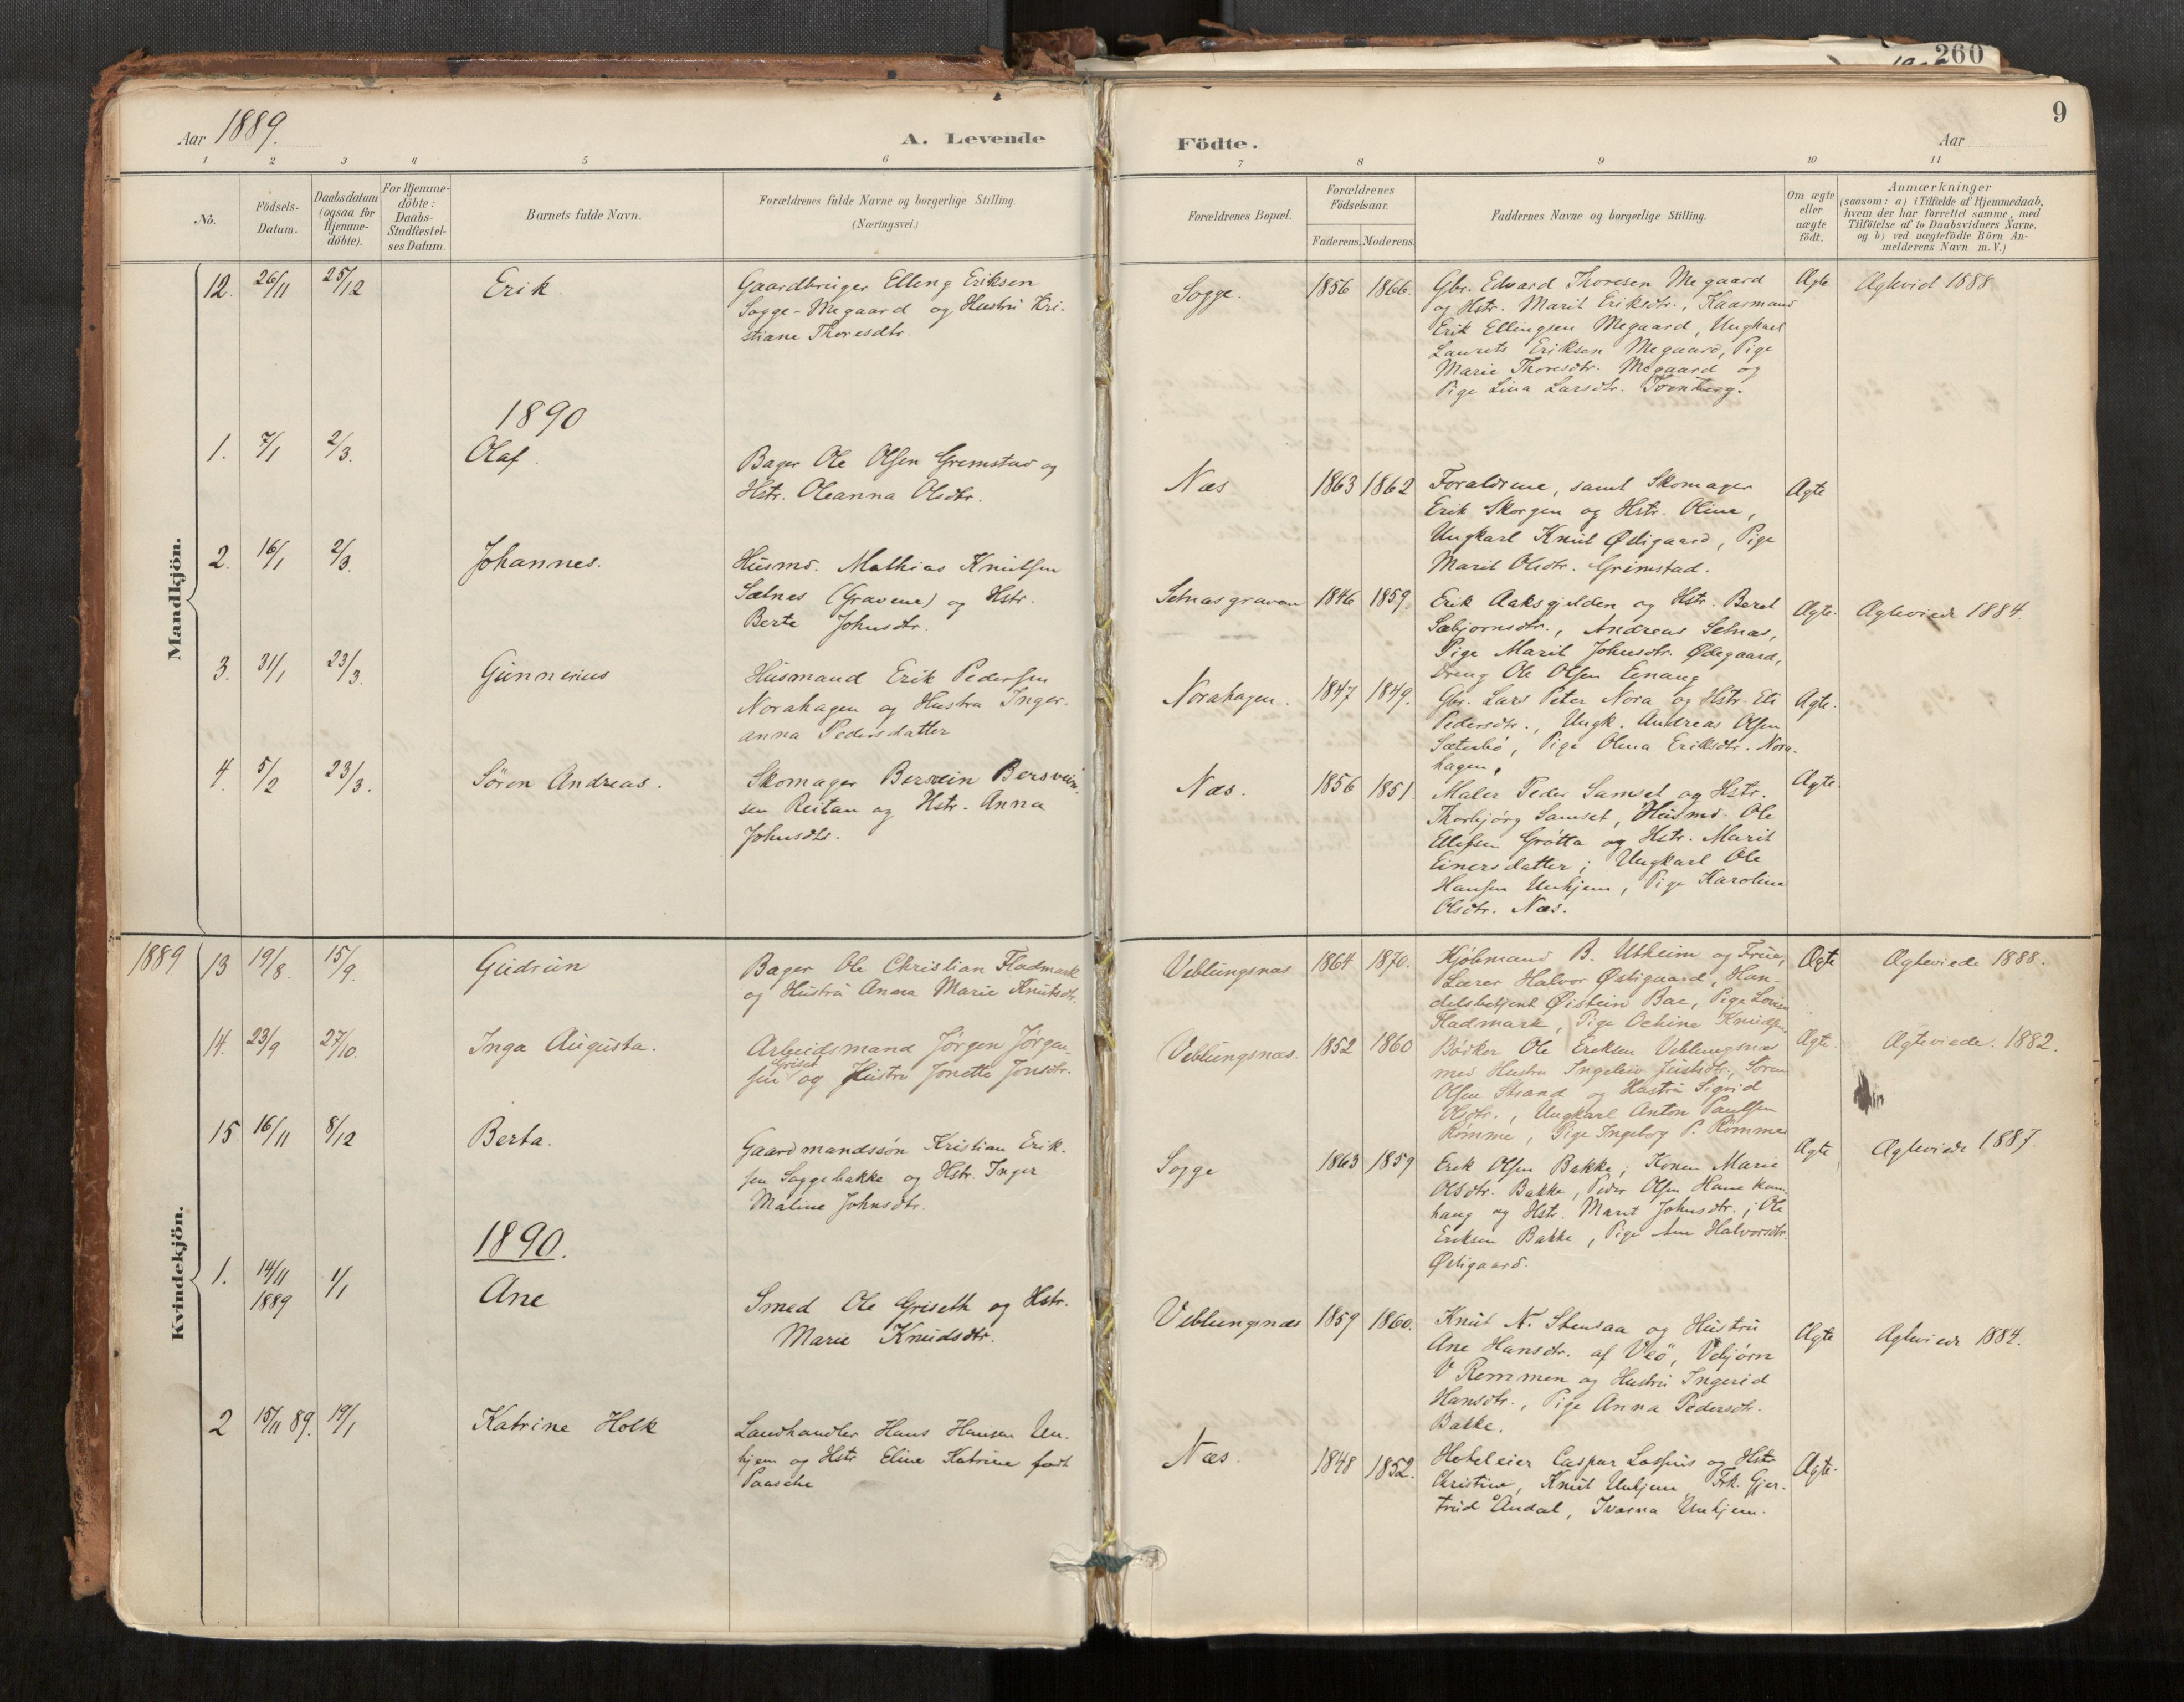 260
9
Aar 1889.
A. Levende
Födte.
Aar
1 2 3 4 5 6 7 8 9 10 11
No.
Födsels-
Datum.
Daabsdatum
(ogsaa for
Hjemme-
döbte).
For Hjemme-
döbte:
Daabs-
Stadfæstel-
ses Datum.
Barnets fulde Navn.
Forældrenes fulde Navne og borgerlige Stilling.
(Næringsvei.)
Forældrenes Bopæl.
Forældrenes
Födselsaar.
Faderens. Moderens.
Faddernes Navne og borgerlige Stilling.
Om ægte
eller
uægte
födt.
Anmærkninger
(saasom: a) i Tilfælde af Hjemmedaab,
hvem der har forrettet samme, med
Tilföielse af to Daabsvidners Navne.
og b) ved uægtefödte Börn An-
melderens Navn m. V.)
Mandkjön.
12. 26/11 25/12 Erik
Gaardbruger Elling Eriksen
Sogge-Megaard og Hustru Kri-
stiane Thoresdtr.
Sogge. 1856 1866.
Gbr. Edvard Thoresen Megaard
og Hstr. Marit Eriksdtr., Kaarmand
Erik Ellingsen Megaard, Ungkarl
Laurits Eriksen Megaard, Pige
Marie Thoresdtr. Megaard og
Pige Lina Larsdtr.
Ægte Ægtevid 1888
1890
1. 7/1 2/3. Olaf.
Bager Ole Olsen Grimstad og
Hstr. Oleanna Olsdtr.
Næs 1863 1862
Forældrene, samt Skomager
Erik Skorgen og Hstr. Oline,
Ungkarl Knut Ødigaard, Pige
Marit Olsdtr. Grimstad.
Ægte
2. 16/1 2/3. Johannes.
Husmd. Mathias Knutsen
Sætnes (Gravene) og Hstr.
Berte Johnsdtr.
Setnesgraven 1846 1859.
Erik Aaksgjelden og Hstr. Beret
Sæbjørnsdtr., Andreas Setnæs,
Pige Marit Johnsdtr. Ødegaard,
Dreng Ole Olsen Einang
Ægte. Ægteviede 1884.
3. 31/1 23/3. Gunnerius
Husmand Erik Pedersen
Norahagen og Hustru Inger-
anna Pedersdatter
Norahagen. 1847 1849.
Gbr. Lars Peter Nora og Hstr. Eli
Pedersdtr., Ungk. Andreas Olsen
Sæterbø, Pige Olina Eriksdtr. Nora-
hagen.
Ægte.
4. 5/2 23/3. Søren Andreas.
Skomager Bersvein Bersvein-
sen Reitan og Hstr. Anna
Johnsdtr.
Næs. 1856 1851.
Maler Peder Samset og Hstr.
Thorbjørg Samset, Husmd. Ole
Ellefsen Grøtta og Hstr. Marit
Einersdatter; Ungkarl Ole
Hansen Unhjem, Pige Karoline
Olsdtr. Næs.
Ægte.
Kvindekjön.
1889 13 19/8. 15/9. Gudrun
Bager Ole Christian Fladmark
og Hustru Anna Marie Knutsdtr.
Veblungsnæs 1864 1870.
Kjøbmand B. Utheim og Frue,
Lærer Halvor Østigaard, Han-
delsbetjent Øistein Bae, Pige Lovise
Fladmark, Pige Ochine Knudsen
Ægte Ægteviede 1888.
14. 23/9 27/10. Inga Augusta.
Arbeidsmand Jørgen Jørgen-
Griset
sen og Hustru Jonette Jonsdtr.
Veblungsnæs. 1852 1860
Bødker Ole Eriksen Veblungsnæs
med Hustru Ingeleiv Juisdtr., Søren
Olsen Strand og Hustru Sigrid
Olsdtr., Ungkarl Anton Paulsen
Rømme, Pige Ingeborg P. Rømme
Ægte. Ægteviede. 1882.
15 16/11 8/12 Berta.
Gaardmandssøn Kristian Erik-
sen Soggebakke og Hstr. Inger
Maline Johnsdtr.
Sogge 1863 1859
Erik Olsen Bakke, Konen Marie
Olsdtr. Bakke, Peder Olsen Hane kam
haug og Hstr. Marit Johnsdtr.; Ole
Eriksen Bakke, Pige Ane Halvorsdtr.
Østigaard.
Ægte Ægteviede 1887.
1890.
1. 14/11 1889 1/1 Ane
Smed Ole Griseth og Hstr.
Marie Knudsdtr.
Veblungsnæs 1859 1860.
Knut N. Stensaa og Hustru
Ane Hansdtr. af Veö, Vebjørn
V Remmen og Hustru Ingerid
Hansdtr., Pige Anna Pedersdtr.
Bakke.
Ægte Ægteviede 1884.
2 15/11 89. 19/1 Katrine Holk
Landhandler Hans Hansen Un-
hjem og Hstr Eline Katrine født
Paasche
Næs. 1848 1852.
Hoteleier Caspar Lossius og Hstr
Christine, Knut Unhjem, Frk. Gjer-
trud Åndal, Ivarna Unhjem.
Ægte.